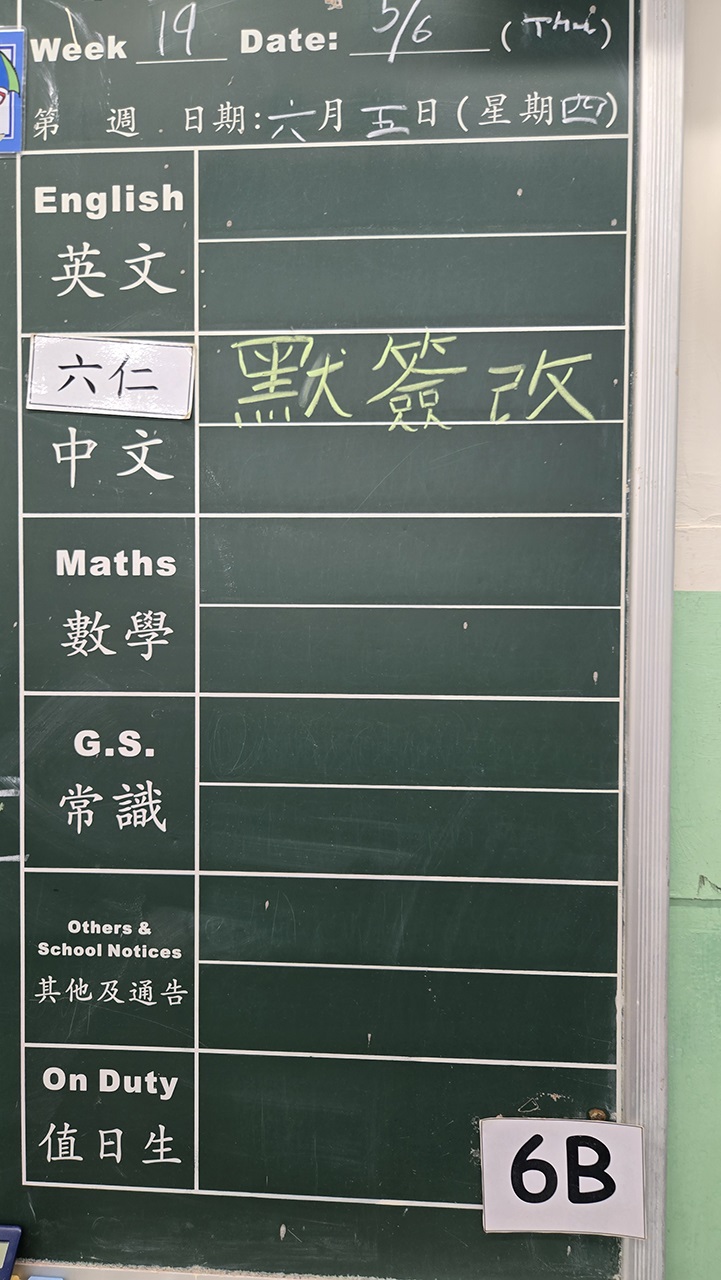 Week 19 Date: 5/6 (Thu)
第 週 日期:六月五日(星期四)
English
英文
六仁
默簽改
中文
Maths
數學
G.S.
常識
Others &
School Notices
其他及通告
On Duty
值日生
6B